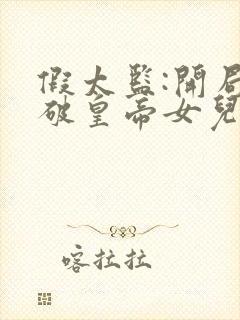 假太監:開局
破皇帝女兒
喀拉拉